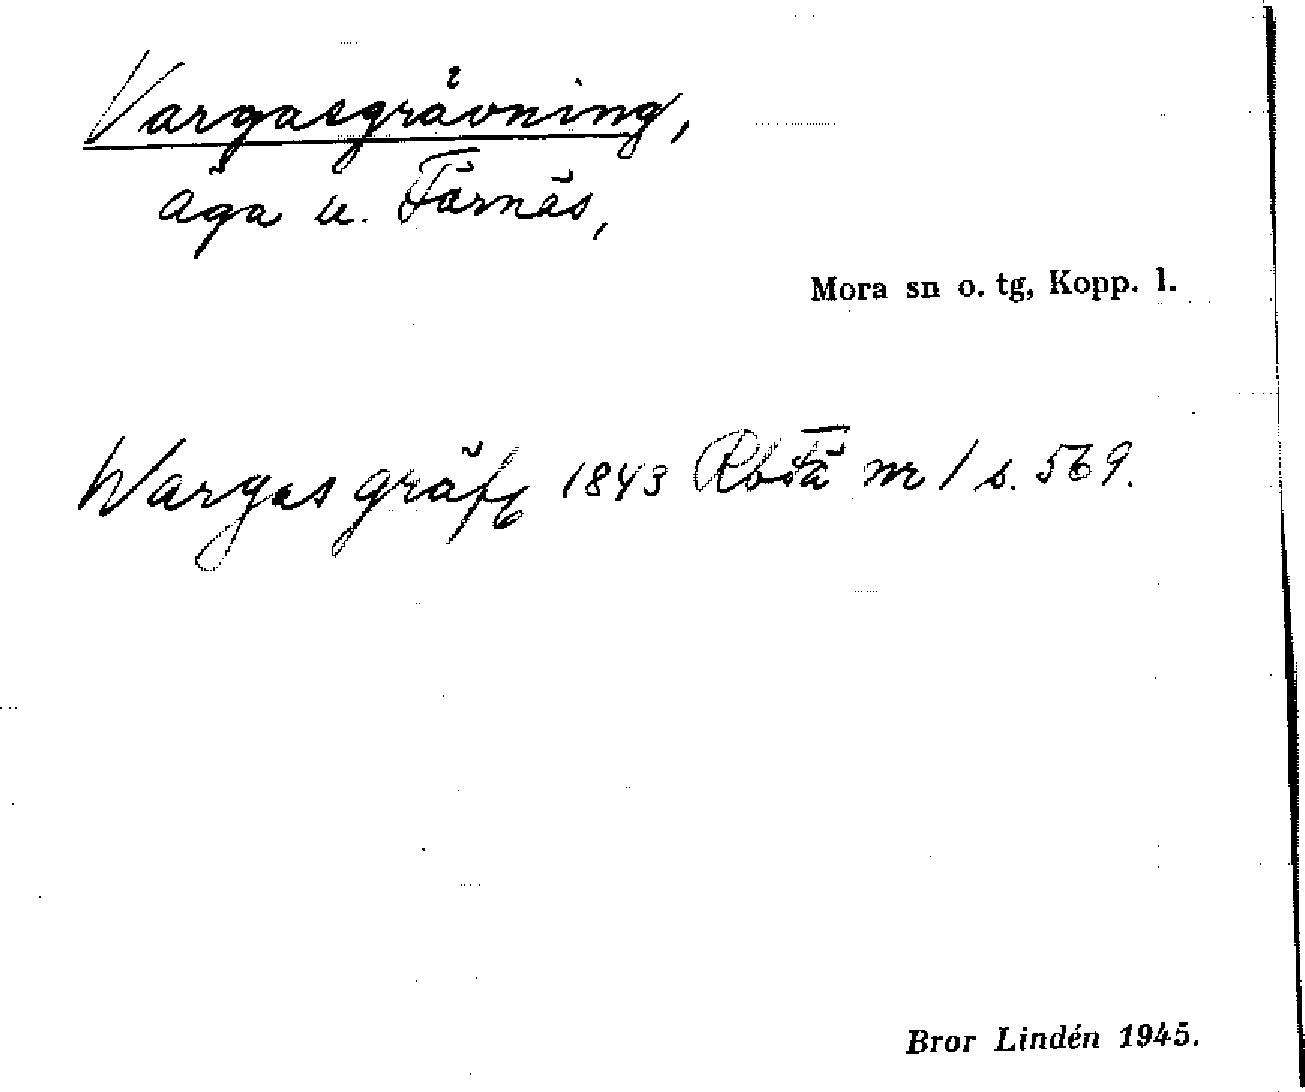 Vargasgrävning,
äga u. Färnäs,
Mora sn o. tg, Kopp. l.
Wargas gräfg 1843 RbTä nr 1 s. 569.
Bror Lindén 1945.